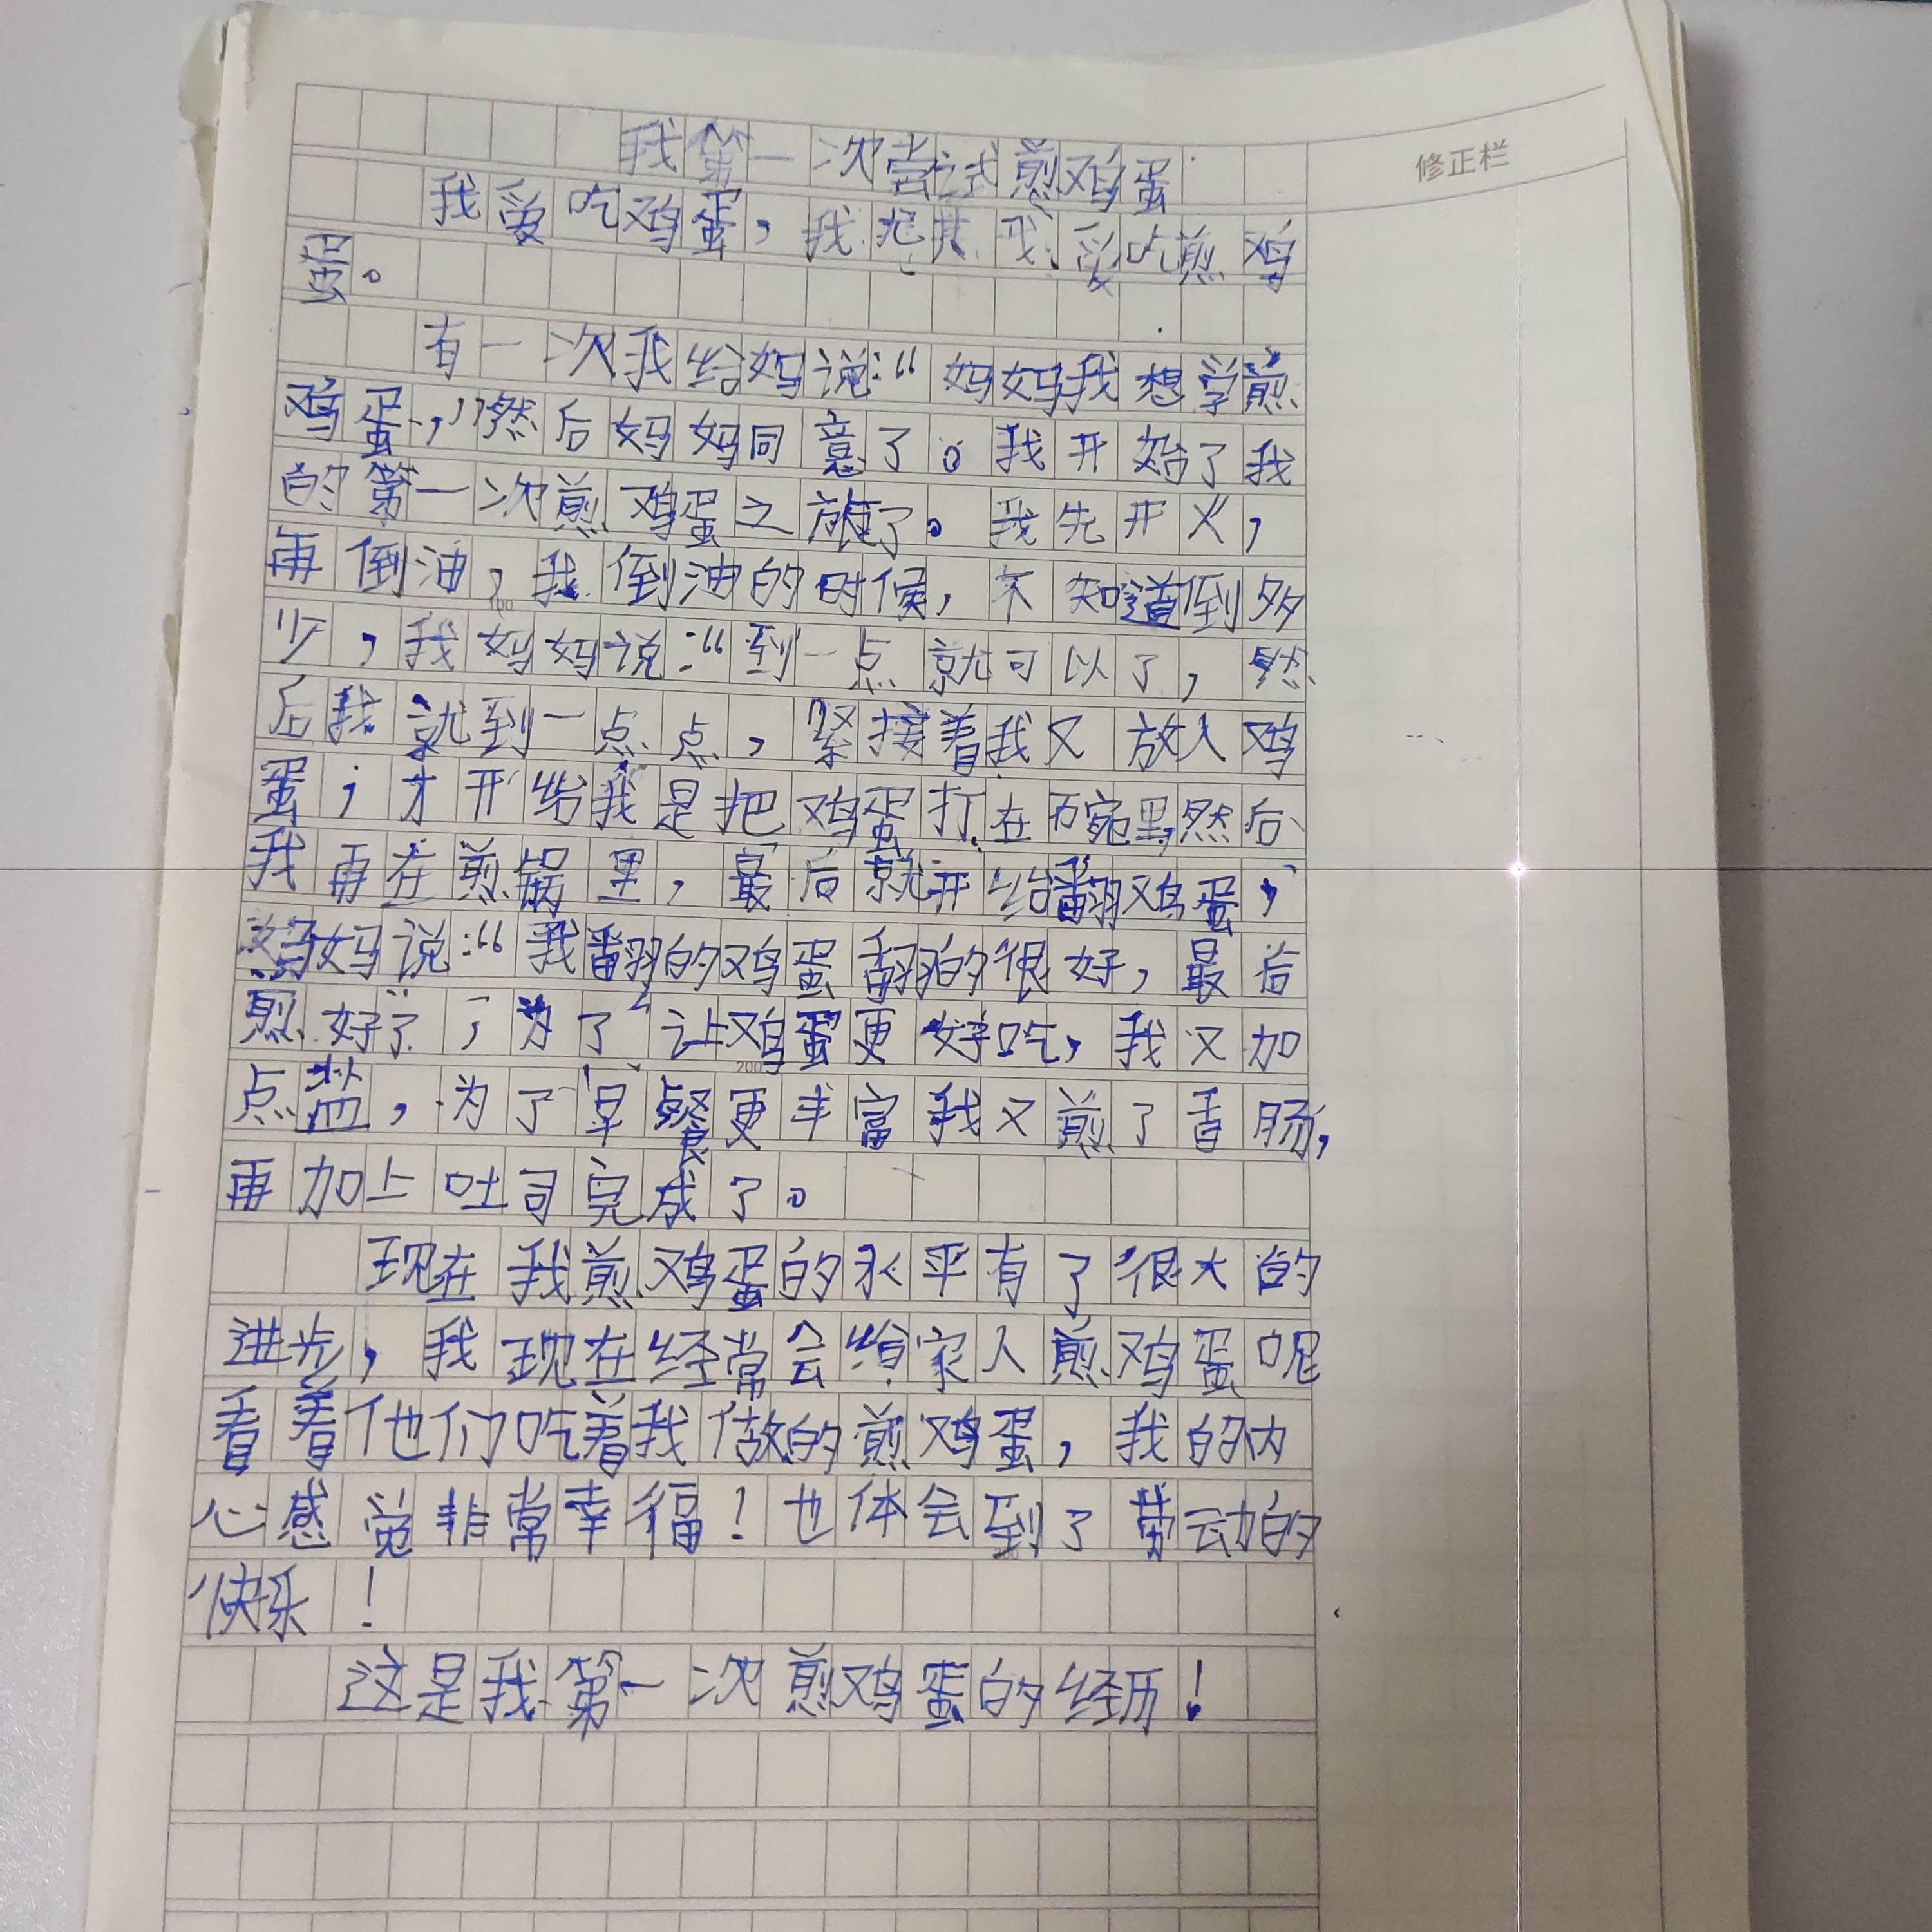 我第一次尝试煎鸡蛋
修正栏
我爱吃鸡蛋，我尤其我爱吃煎鸡
蛋。
有一次我给妈说：“妈妈我想学煎
鸡蛋，”然后妈妈同意了。我开始了我
的第一次煎鸡蛋之旅了。我先开火，
再倒油，我倒油的时候，不知道倒多
100
少，我妈妈说：“到一点就可以了，然
后我就到一点点，紧接着我又放入鸡
蛋；才开始我是把鸡蛋打在碗里，然后
我再在煎锅里，最后就开始翻鸡蛋，
妈妈说：“我翻的鸡蛋翻的很好，最后
煎好了，为了让鸡蛋更好吃，我又加
200
点盐，为了早餐更丰富我又煎了香肠，
再加上吐司完成了。
现在我煎鸡蛋的水平有了很大的
进步，我现在经常会给家人煎鸡蛋呢
看着他们吃着我做的煎鸡蛋，我的内
心感觉非常幸福！也体会到了劳动的
快乐！
这是我第一次煎鸡蛋的经历！